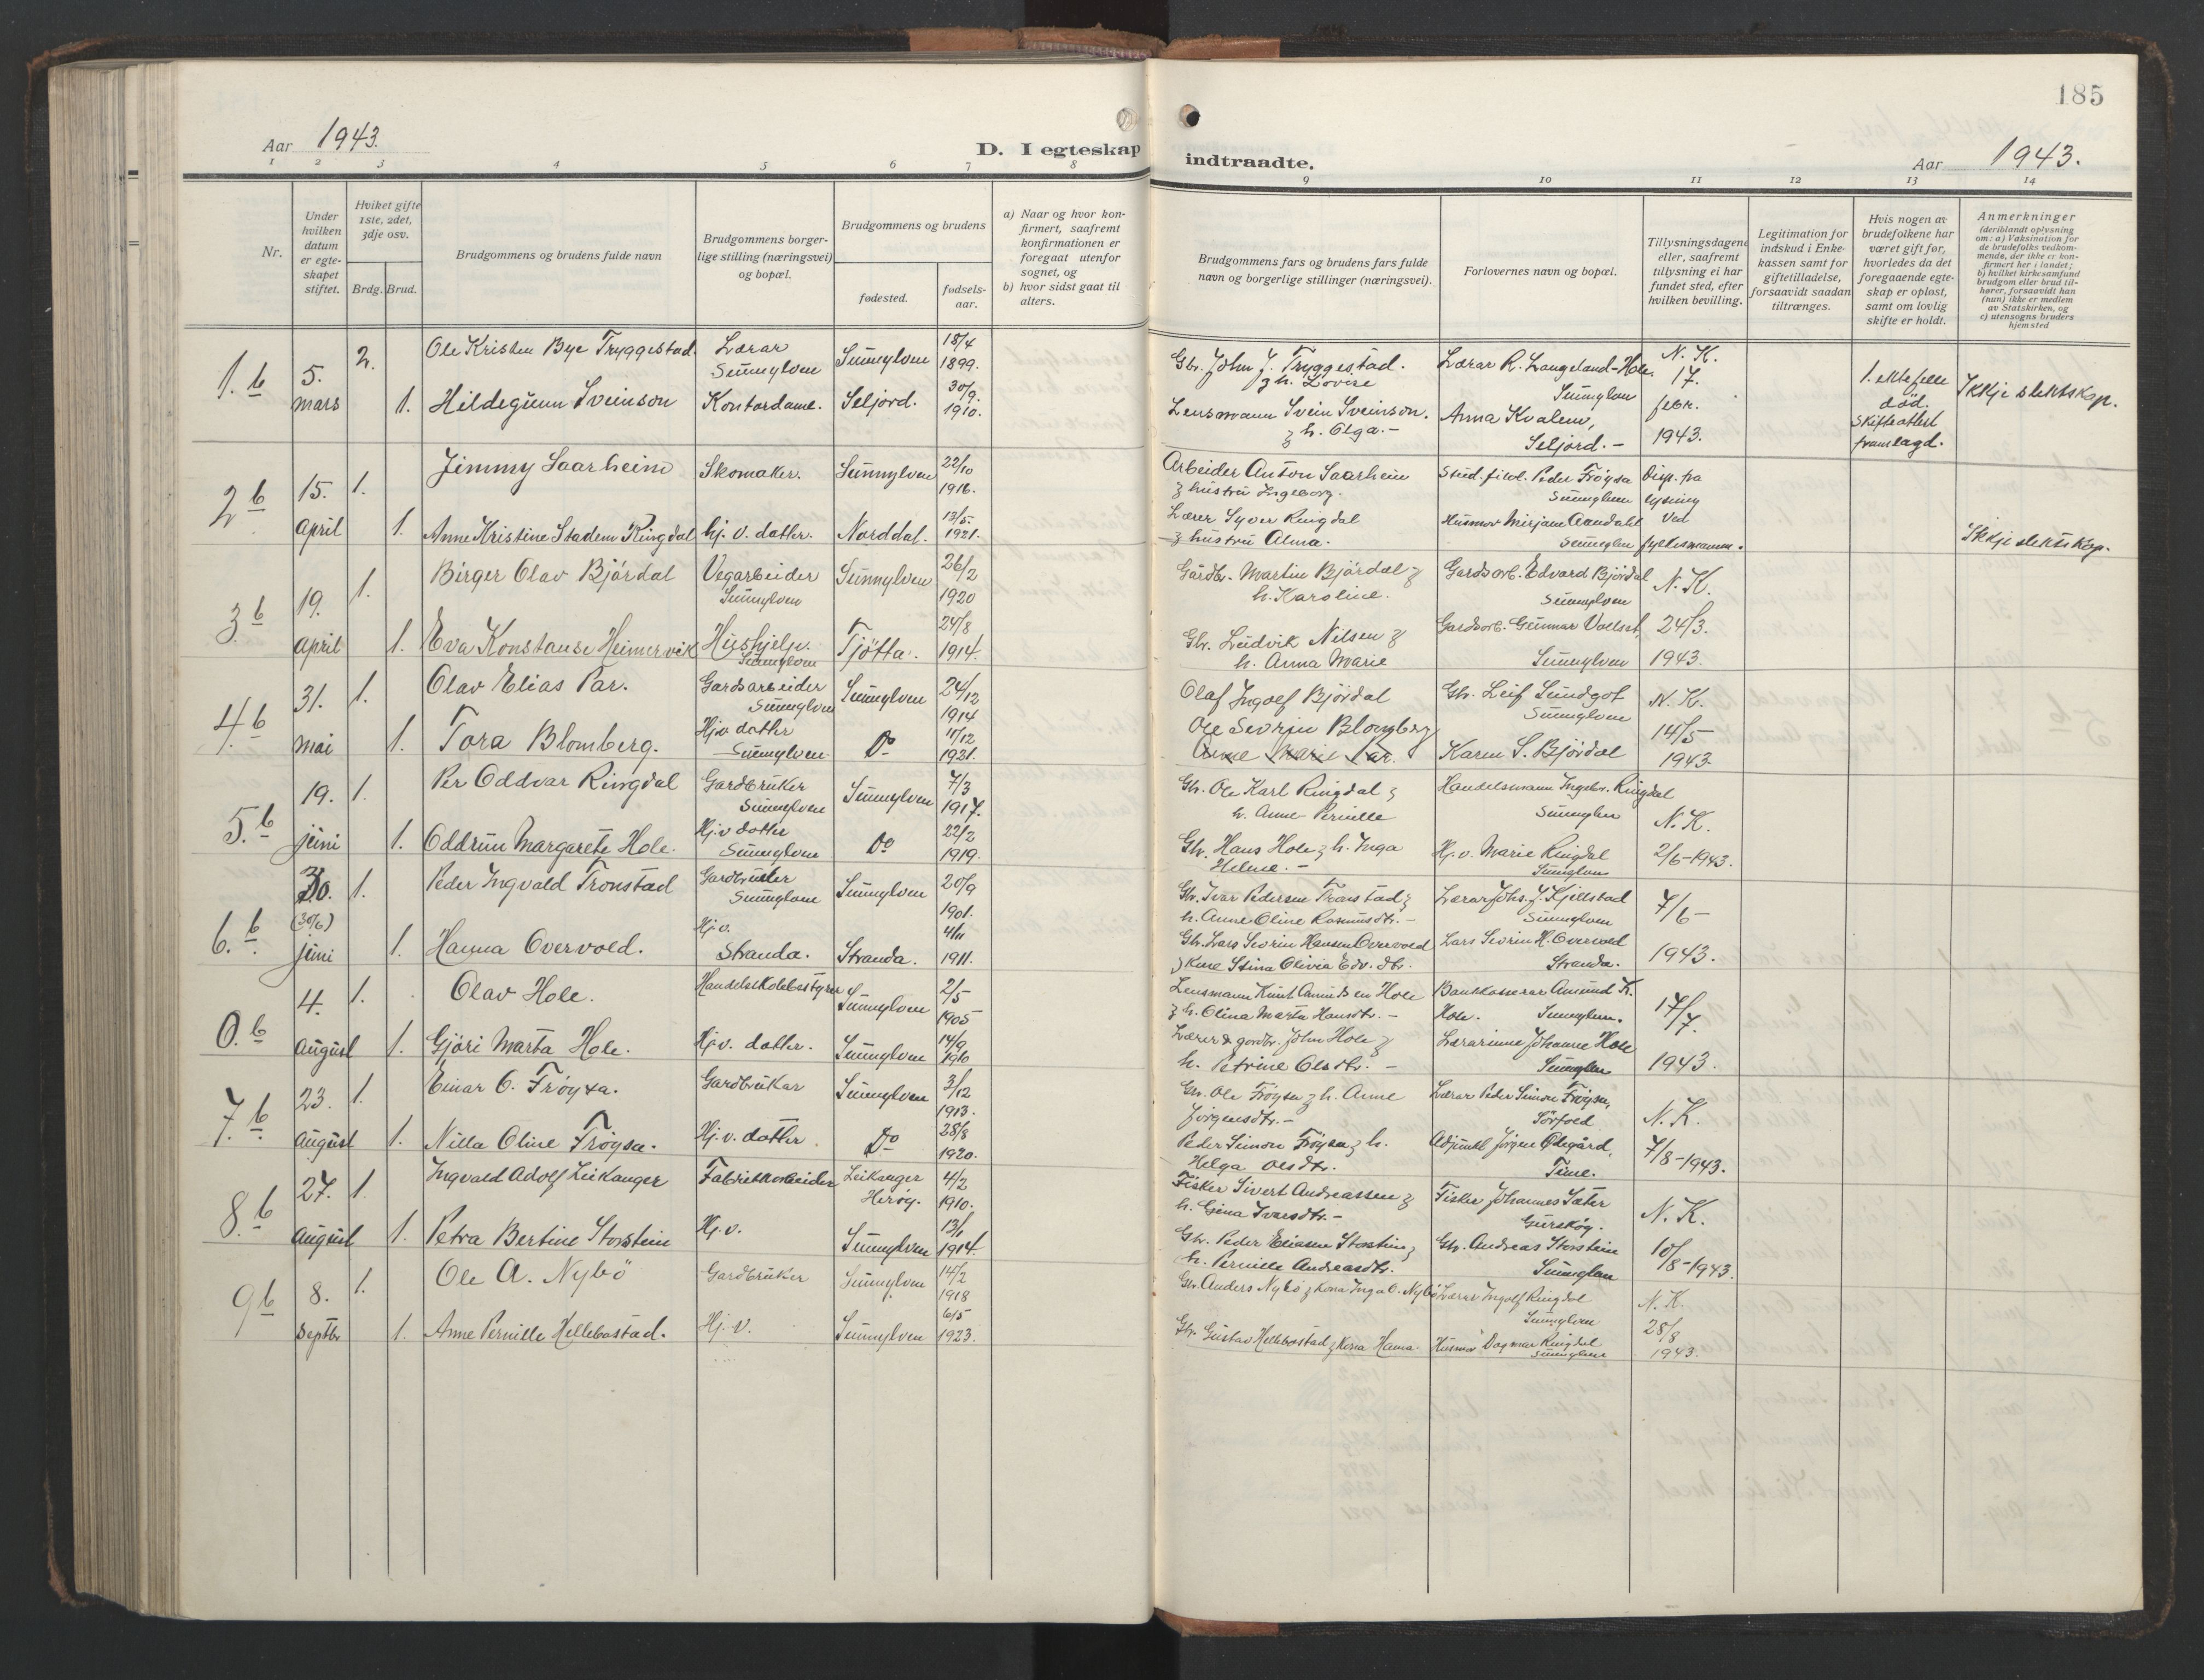 185
Aar 1943.
D. I egteskap indtraadte.
Aar 1943.
1 2 3 4 5 6 7 8 9 10 11 12 13 14
Nr.
Under hvilken datum er egte-skapet stiftet.
Hviket gifte 1ste, 2det, 3dje osv.
Brdg. Brud.
Brudgommens og brudens fulde navn
Brudgommens borger-lige stilling (næringsvei) og bopæl.
Brudgommens og brudens
fødested.
fødsels-aar.
a) Naar og hvor kon-firmert, saafremt konfirmationen er foregaat utenfor sognet, og
b) hvor sidst gaat til alters.
Brudgommens fars og brudens fars fulde navn og borgerlige stillinger (næringsvei).
Forlovernes navn og bopæl.
Tillysningsdagene eller, saafremt tillysning ei har fundet sted, efter hvilken bevilling.
Legitimation for indskud i Enke-kassen samt for giftetilladelse, forsaavidt saadan tiltrænges.
Hvis nogen av brudefolkene har været gift før, hvorledes da det foregaaende egte-skap er opløst, samt om lovlig skifte er holdt.
Anmerkninger (deriblandt oplysning om: a) Vaksination for de brudefolks vedkom-mende, der ikke er kon-firmert her i landet; b) hvilket kirkesamfund brudgom eller brud til-hører, forsaavidt han (hun) ikke er medlem av Statskirken, og c) utensogns bruders hjemsted
1. b 5. mars 2. Ole Kristen Bye Tryggestad. Lærar Sunnylven Sunnylven 18/4 1899.
1. Hildegunn Sveinson Kontordame. Seljord. 30/9. 1910.
Gbr. John J. Tryggestad. & h. Lovise
Lensmann Svein Sveinson. & h. Olga.-
Lærar R. Langeland-Hole. Sunnylven
Anna Kvalen, Seljord.-
N. K. 17. febr. 1943.
1. ektefelle död. Skifteattest framlagd.
Ikkje slektskap.
2 b 15. april 1. Jimmy Saarheim Skomaker. Sunnylven 22/10 1916.
1. Anne Kristine Stadem Ringdal hj. v. dotter. Norddal. 13/5. 1921.
Arbeider Anton Saarheim & hustru Ingeborg.
Lærer Syver Ringdal & hustru Alma.
Stud. filol. Peder Fröysa Sunnylven
Husmor Mirjam Aandahl Sunnylven
Disp. fra lysing ved fylkesmann.
Ikkje slektskap.
3. b 19. april 1. Birger Olav Björdal Vegarbeider Sunnylven Sunnylven 26/2 1920
1. Eva Konstanse Heimervik Hushjelp. Sunnylven Tjötta. 24/8 1914.
Gardbr. Martin Björdal & h. Karoline.
Gbr. Ludvik Nilsen & h. Anna Marie
Gardsarb. Edvard Björdal Sunnylven
Gardsarb. Gunnar Vollset, Sunnylven
N. K. 24/3. 1943.
4. b 31. mai 1. Olav Elias Par. Gardsarbeider Sunnylven Sunnylven 24/12 1914
1. Tora Blomberg. Hj.v dotter Sunnylven. Do 11/12 1921.
Olaf Ingolf Björdal
Ole Sevrin Blomberg
Anne Marie Par.
Gbr. Leif Lundgot Sunnylven
Karen S. Björdal
N. K. 14/5 1943.
5. b 19. juni 1. Per Oddvar Ringdal Gardbruker Sunnylven Sunnylven 7/3 1917.
1. Oddrun Margarete Hole. Hj.v dotter Sunnylven Do 22/2 1919.
Gbr. Ole Karl Ringdal & h. Anne Pernille
Gbr. Hans Hole & h. Inga Helene.-
Handelsmann Ingebr. Ringdal Sunnylven
Hj. v. Marie Ringdal Sunnylven
N. K. 2/6-1943.
6. b 30. (30/6) juni 1. Peder Ingvald Tronstad Gardbruker Sunnylven Sunnylven 20/9 1901.
1. Hanna Overvold. Hj.v. Stranda. Stranda. 4/11 1911.
Gbr. Ivar Pedersen Tronstad & h. Anne Oline Rasmusdtr.-
Gbr. Lars Sevrin Hansen Overvold & kone Stina Olivia Edv. dtr.
Lærar Johs. J. Kjellstad Sunnylven
Lars Sevrin H. Overvold Stranda.
7/6- 1943.
0. b 4. august 1. Olav Hole. Handelskolebestyrer Sunnylven 2/5 1905
1. Gjöri Marta Hole. Hj.v. dotter. Sunnylven 14/9 1910
Lensmann Knut Amundsen Hole & h. Olina Marta Hansdtr.-
Lærer & gardbr. John Hole & h. Petrine Olsdtr.-
Bankkasserar Amund K. Hole. Sunnylven.
Lærarinne Johanne Hole Sunnylven
17/7. 1943.
7. b 23. august 1. Einar O. Fröysa. Gardbrukar Sunnylven 3/12 1913.
1. Nilla Oline Fröysa. Hj.v. dotter. Do 28/8 1920.
Gbr. Ole Fröysa & h. Anne Jörgensdtr.-
Peder Simon Fröysa & h. Helga Olsdtr.
Lærar Peder Simon Fröysa, Sörfold
Adjunkt Jörgen Ödegård, Time.
N. K. 7/8-1943.
8. b 27. august 1. Ingvald Adolf Leikanger Fabrikkarbeider Leikanger Heröy. 4/2 1910.
1. Petra Bertine Storstein Hj.v. Sunnylven 13/1 1914.
Fisker Sivert Andreassen & h. Gina Ivarsdtr.-
Gbr. Peder Eliassen Storstein & h. Pernille Andreasdtr.
Fisker Johannes Sæter Gurskøy.
Gbr. Andreas Storstein Sunnylven
N. K. 10/8-1943.
9 b 8. Septbr 1. Ole A. Nybö Gardbruker Sunnylven 14/2 1918
1. Anne Pernille Hellebostad. Hj.v. Sunnylven 6/5 1923.
Gbr. Anders Nybö & kona Inga O. Nybö
Gbr. Gustav Hellebostad & kona Hanna.
Lærar Ingolf Ringdal Sunnylven
Husmor Dagmar Ringdal Sunnylven
N. K. 28/8 1943.